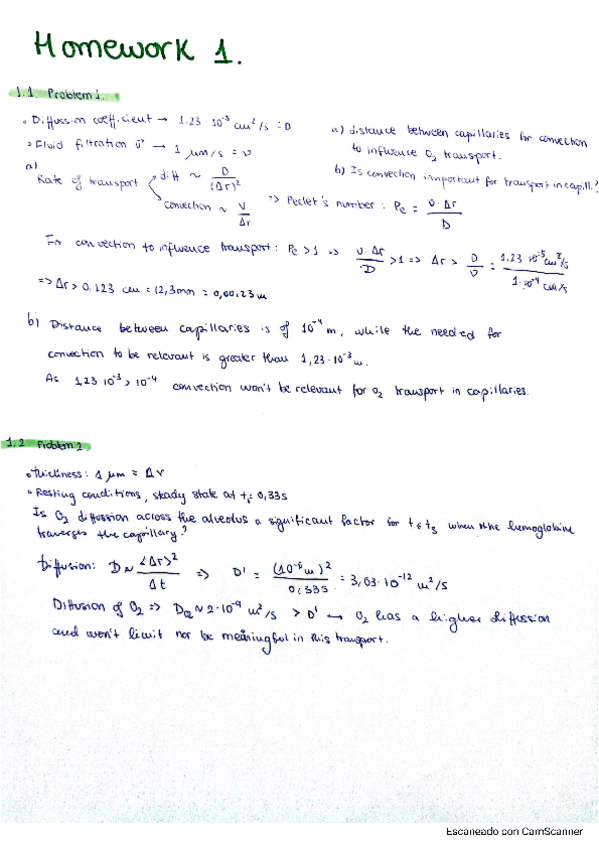 Homework 1.
1.1. Problem 1.
• Diffussion coefficient → 1.23 10⁻⁵ cm²/s : D
• Fluid filtration v → 1 μm/s = v
a) distance between capillaries for convection
to influence O₂ transport.
b) Is convection important for transport in capill.?
a)
Rate of transport diff ~ D/(Δr)²
convection ~ v/Δr
=> Peclet's number: Pe = v·Δr/D
For convection to influence transport: Pe > 1 => v·Δr/D > 1 => Δr > D/v = 1.23 10⁻⁵ cm²/s / 1·10⁻⁴ cm/s
=> Δr > 0,123 cm = 12,3mm = 0,00123 m
b) Distance between capillaries is of 10⁻⁴ m, while the needed for
convection to be relevant is greater than 1,23·10⁻³ m.
As 1,23 10⁻³ > 10⁻⁴ convection won't be relevant for O₂ transport in capillaries.
1.2 Problem 2
• thickness: 1 μm = Δr
• Resting conditions, stady state at t = 0,33s
Is O₂ diffussion across the alveolus a significant factor for when the hemoglobine
traverses the capillary?
Diffusion: D ~ (Δr)²/Δt => D' = (10⁻⁶m)²/0,33s = 3,03·10⁻¹² m²/s
Diffusion of O₂ => D ~ 2·10⁻⁹ m²/s > D' → O₂ has a higher diffussion
and won't limit nor be meaningful in this transport.
Escaneado con CamScanner